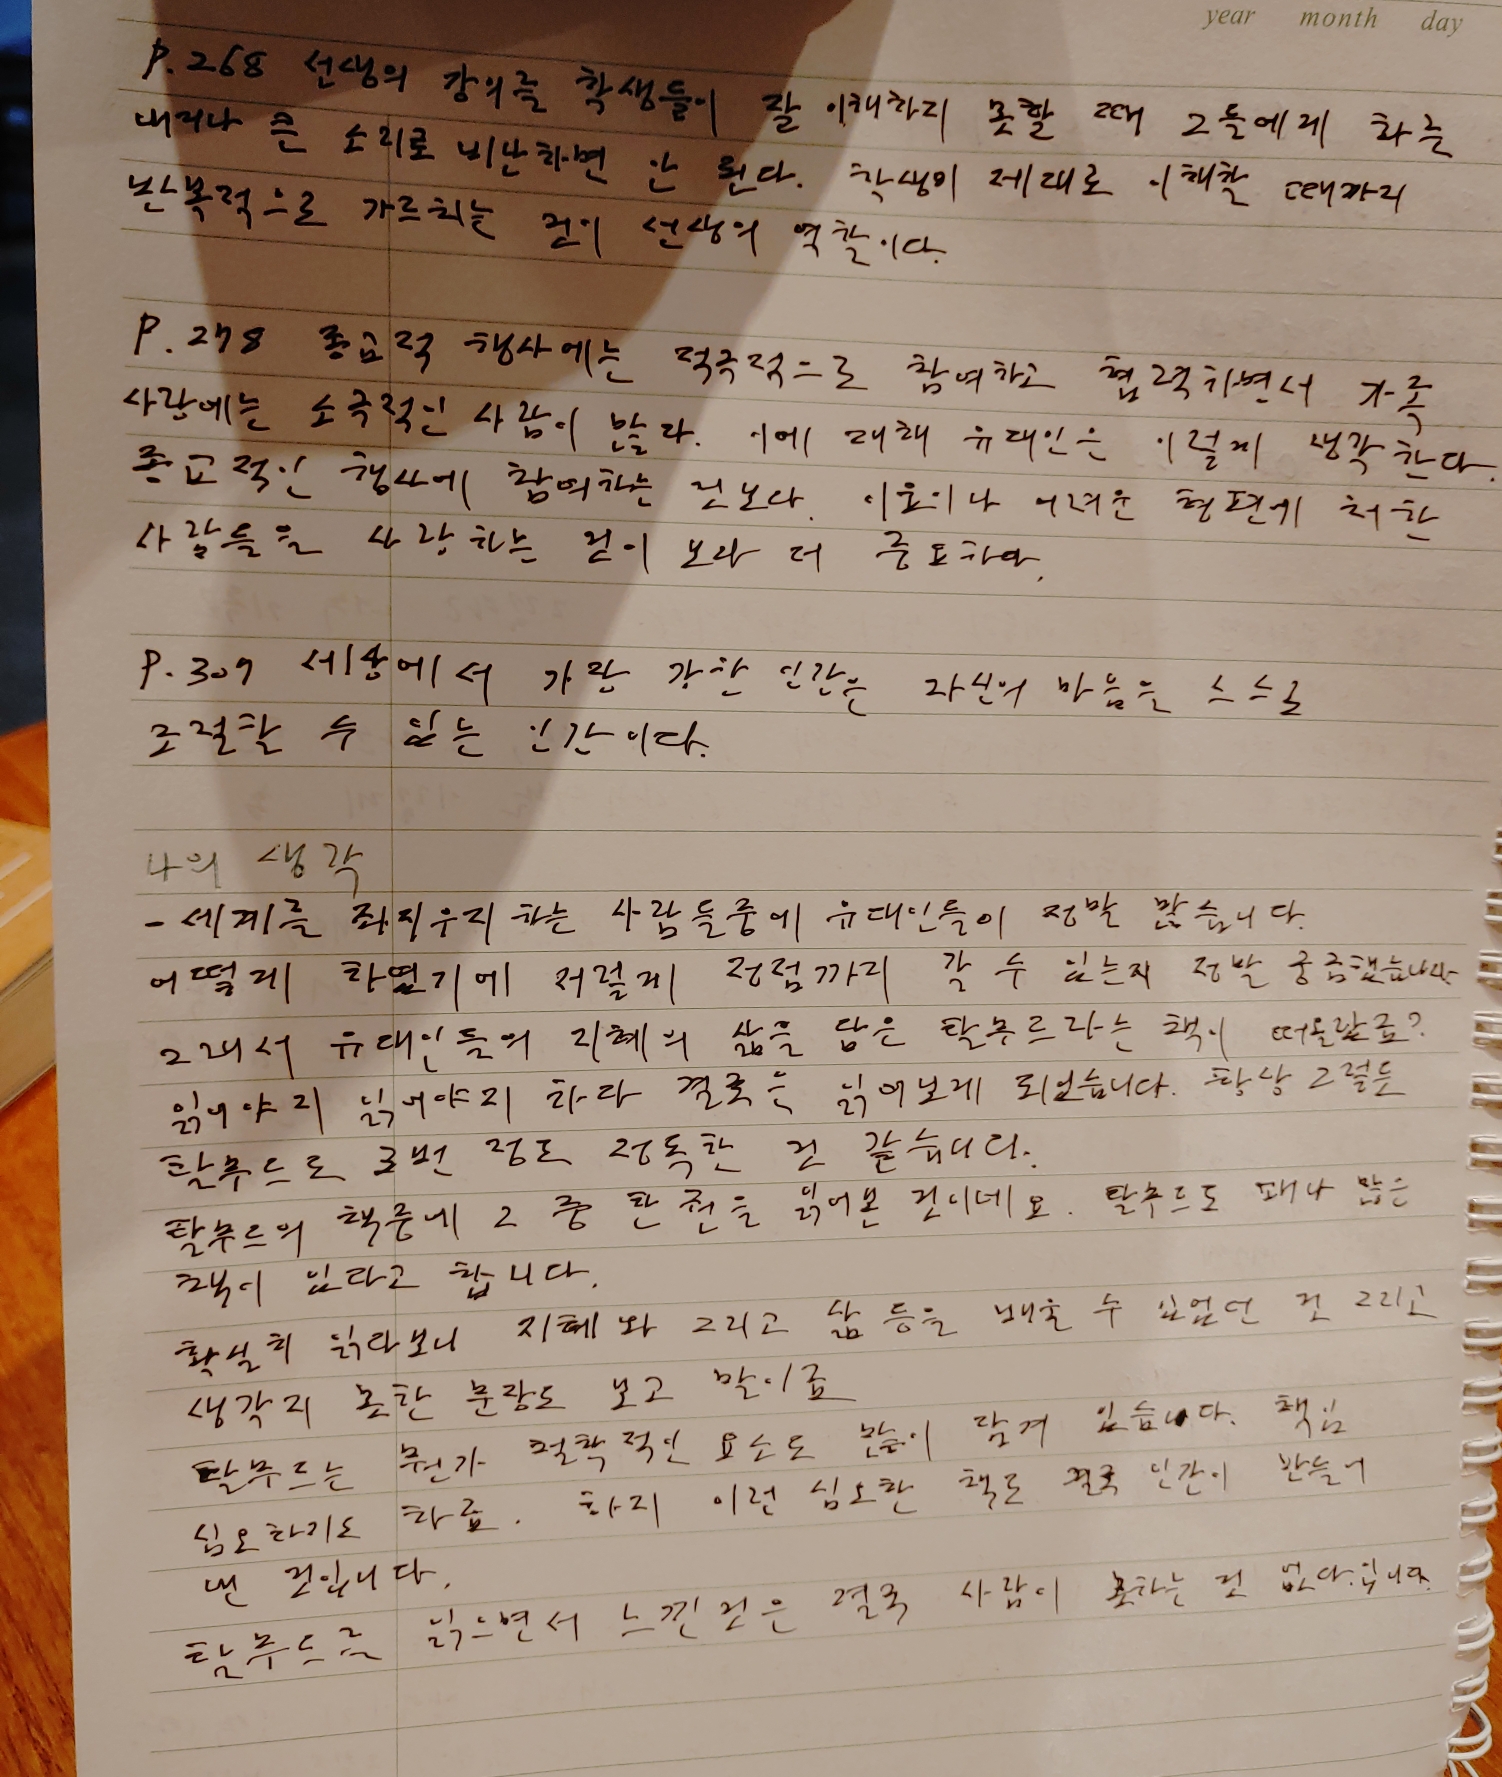 year month day
P.268 선생의 강의를 학생들이 잘 이해하지 못할 때 그들에게 화를
내거나 큰 소리로 비난하면 안 된다. 학생이 제대로 이해할 때까지
반복적으로 가르치는 것이 선생의 역할이다.
P.278 종교적 행사에는 적극적으로 참여하고 협력하면서 가족
사랑에는 소극적인 사람이 많다. 이에 대해 유대인은 이렇게 생각한다.
종교적인 행사에 참여하는 것보다. 이웃이나 어려운 형편에 처한
사람들을 사랑하는 것이 보다 더 중요하다.
P.309 세상에서 가장 강한 인간은 자신의 마음을 스스로
조절할 수 있는 인간이다.
나의 생각
- 세계를 좌지우지 하는 사람들중에 유대인들이 정말 많습니다.
어떻게 하였기에 저렇게 정점까지 갈 수 있는지 정말 궁금했습니다
그래서 유대인들의 지혜의 삶을 담은 탈무드라는 책이 떠올랐죠?
읽어야지 읽어야지 하다 결국은 읽어보게 되었습니다. 항상 그렇듯
탈무드도 3번 정도 정독한 것 같습니다.
탈무드의 책중에 그 중 한 권을 읽어본 것이네요. 탈무드도 꽤나 많은
책이 있다고 합니다.
확실히 읽다보니 지혜와 그리고 삶 등을 배울 수 있었던 것 그리고
생각지 못한 문장도 보고 말이죠
탈무드는 뭔가 철학적인 요소도 많이 담겨 있습니다. 책임
심오하기도 하죠. 하지 이런 심오한 책도 결국 인간이 만들어
낸 것입니다.
탈무드를 읽으면서 느낀것은 결국 사람이 못하는 것 없다.입니다.